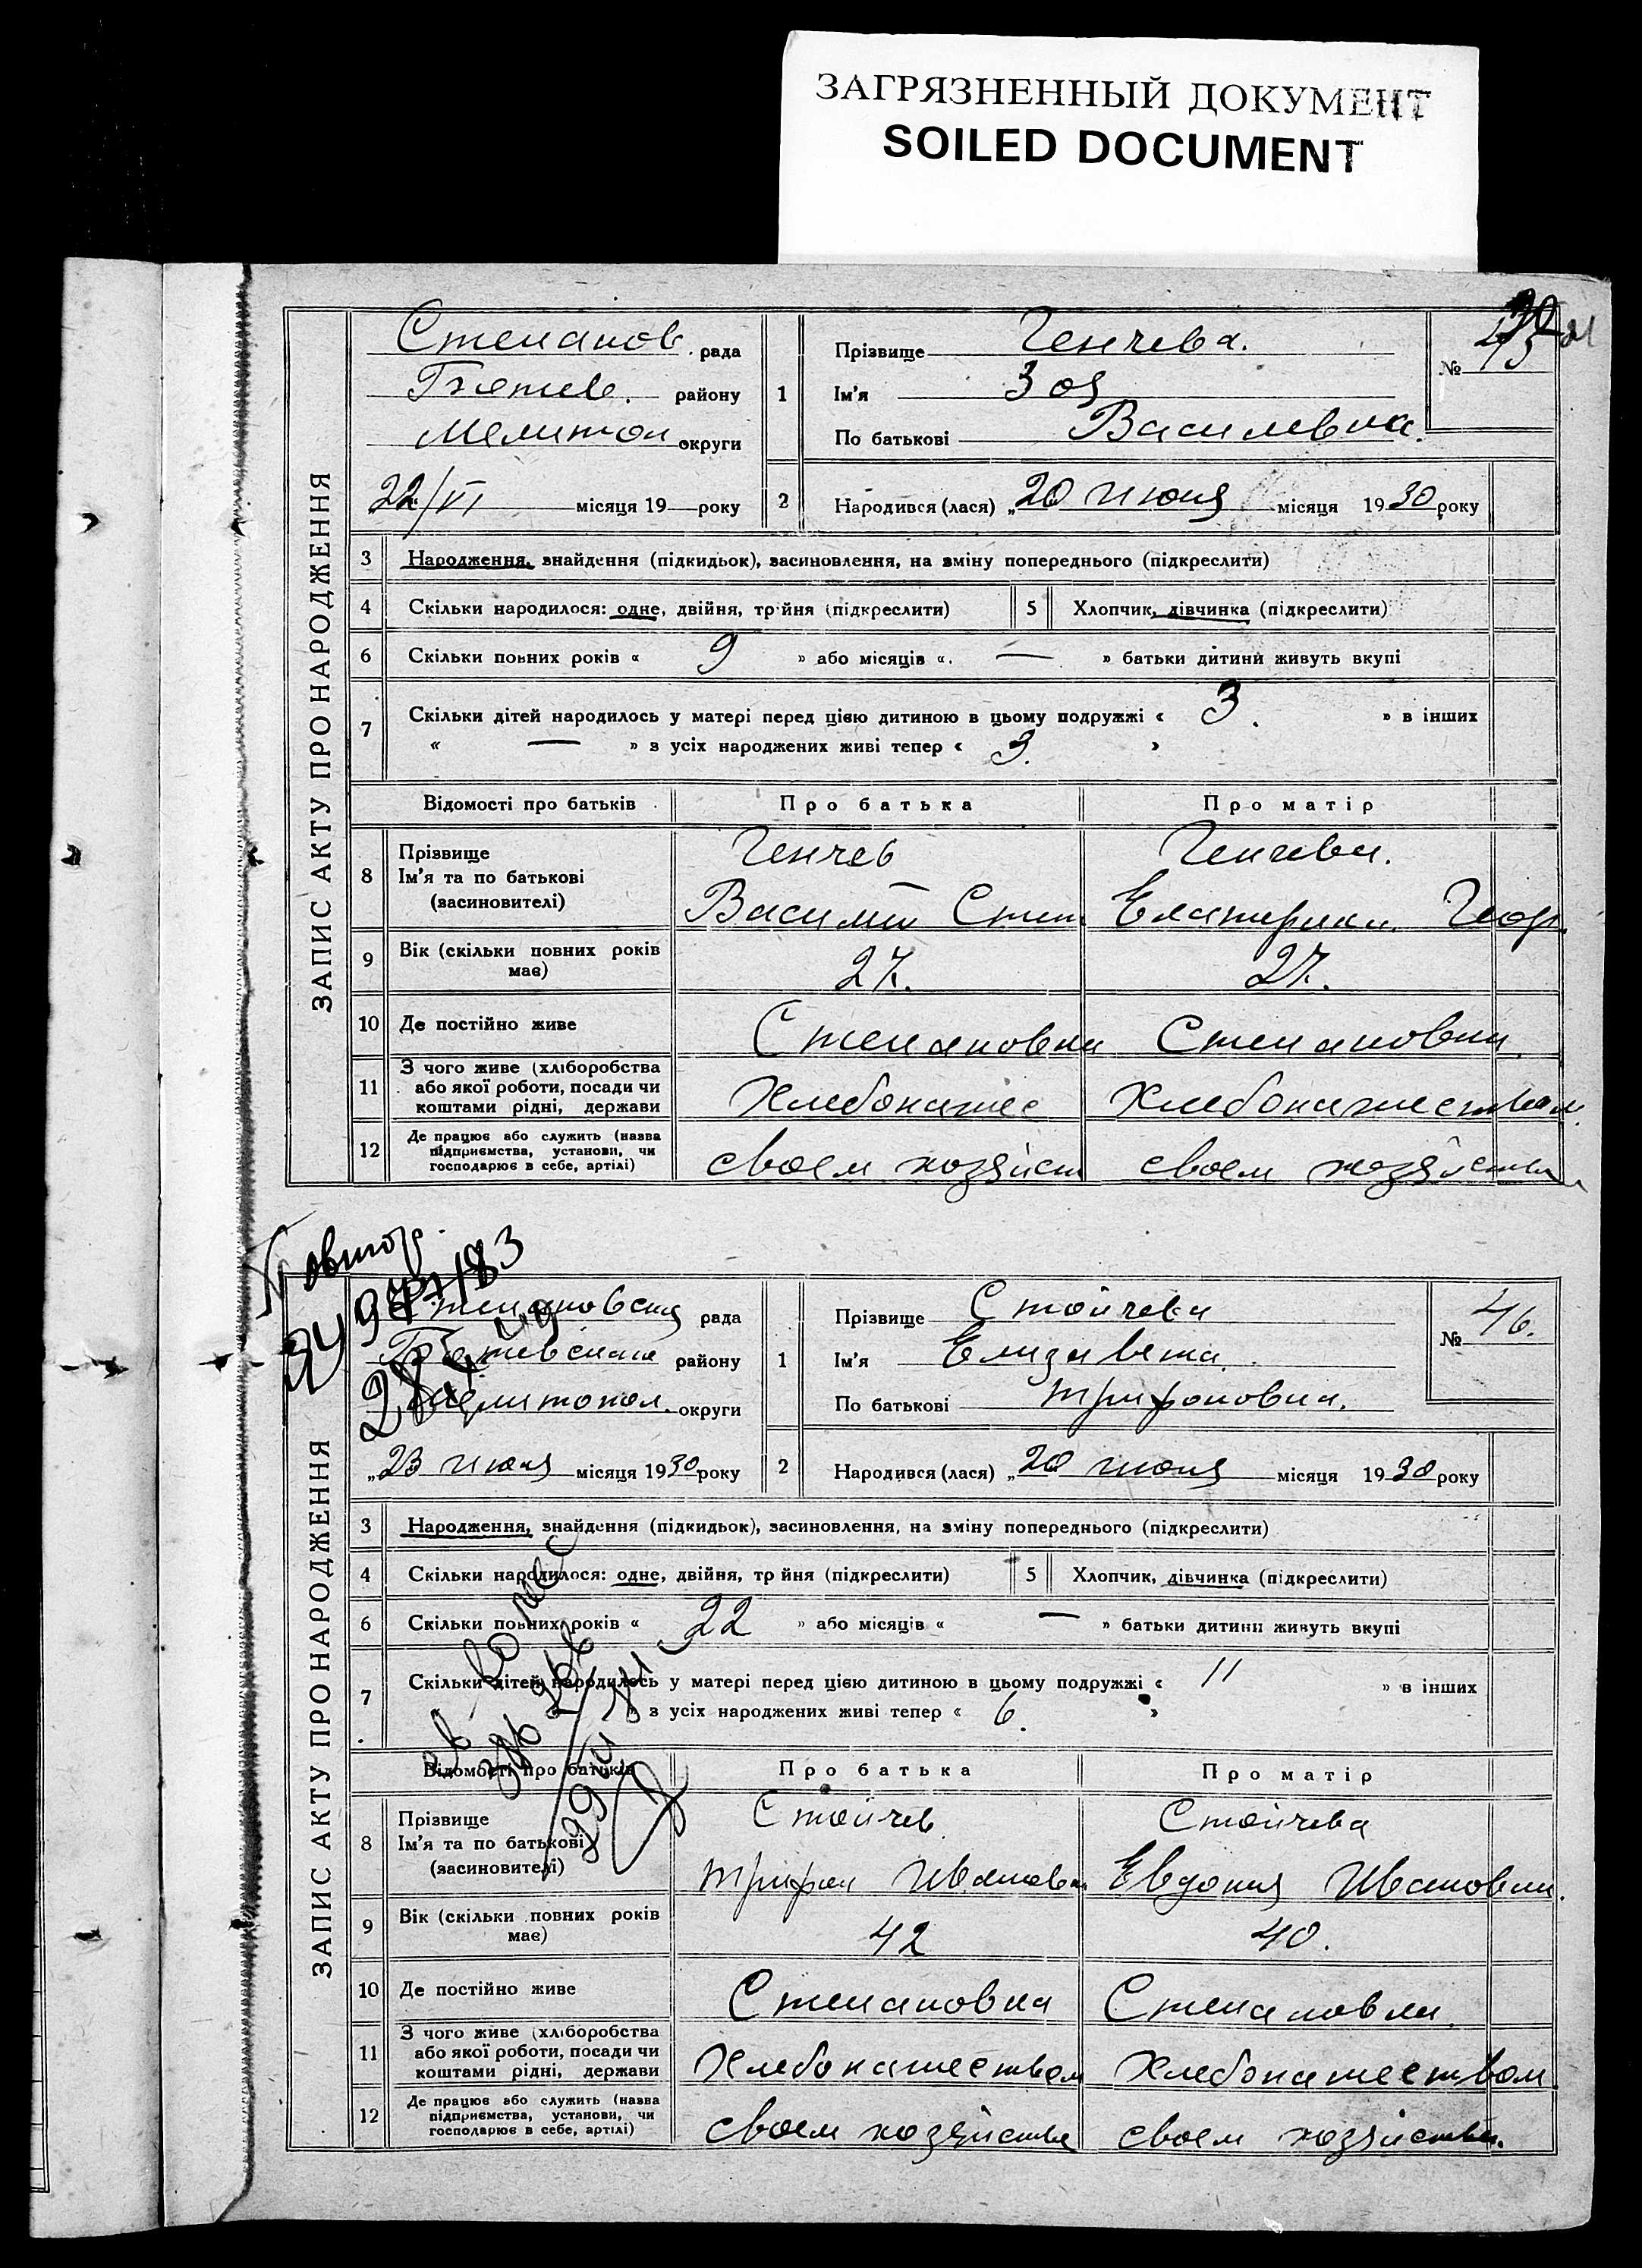 ЗАГРЯЗНЕННЫЙ ДОКУМЕНТ
SOILED DOCUMENT
ЗАПИС АКТУ ПРО НАРОДЖЕННЯ
Степанов. рада
району
Мелитоп округи
22/VI місяця 19 року
1
Прізвище Генчева.
Ім'я Зоя
По батькові Василевна.
№ 45
2
Народився (лася) „20 июня місяця 1930 року
3 Народження, знайдення (підкидьок), засиновлення, на зміну попереднього (підкреслити)
4 Скільки народилося: одне, двійня, трійня (підкреслити) 5 Хлопчик, дівчинка (підкреслити)
6 Скільки повних років « 9 » або місяців « — » батьки дитини живуть вкупі
7 Скільки дітей народилось у матері перед цією дитиною в цьому подружжі « 3. » в інших
« — » з усіх народжених живі тепер « 3. »
Відомості про батьків Про батька Про матір
8 Прізвище Генчев Генчева.
Ім'я та по батькові
(засиновителі) Василий Степ Екатерина Геор.
9 Вік (скільки повних років має) 27. 27.
10 Де постійно живе Степановка Степановка.
11 З чого живе (хліборобства
або якої роботи, посади чи
коштами рідні, держави Хлебопашес Хлебопашеством.
12 Де працює або служить (назва
підприємства, установи, чи
господарює в себе, артілі) своем хозяйст своем хозяйстве
Повтор.
ЗАПИС АКТУ ПРО НАРОДЖЕННЯ
Степановская рада
району
Мелитопол. округи
„23 июня місяця 1930 року
1
Прізвище Стойчева
Ім'я Елизавета.
По батькові Трифоновна.
№ 46.
2
Народився (лася) „20 июня місяця 1930 року
3 Народження, знайдення (підкидьок), засиновлення, на зміну попереднього (підкреслити)
4 Скільки народилося: одне, двійня, тр йня (підкреслити) 5 Хлопчик, дівчинка (підкреслити)
6 Скільки повних років « 22 » або місяців « — » батьки дитини живуть вкупі
7 Скільки дітей народилось у матері перед цією дитиною в цьому подружжі « 11 » в інших
» з усіх народжених живі тепер « 6. »
Відомості про батьків Про батька Про матір
8 Прізвище Стойчев Стойчева
Ім'я та по батькові
(засиновителі) Трифон Иванов Евдокия Ивановна.
9 Вік (скільки повних років має) 42 40.
10 Де постійно живе Степановка Степановка.
11 З чого живе (хліборобства
або якої роботи, посади чи
коштами рідні, держави Хлебопашеством Хлебопашеством.
12 Де працює або служить (назва
підприємства, установи, чи
господарює в себе, артілі) своем хозяйстве своем хозяйстве.